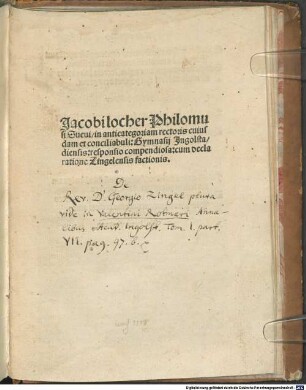 Jacobi locher Philomu
si Sueui/in anticategoriam rectoris cuius
dam et conciliabuli: Gymnasij Ingolsta/
diensis: responsio compendiosa: cum decla
ratione Zingelensis factionis.
De
Rev. D. Georgio Zingel plura
vide in Valentini Rotmari Anna-
Ingolst. Tom I. part.
VII. pag. 97. 6.